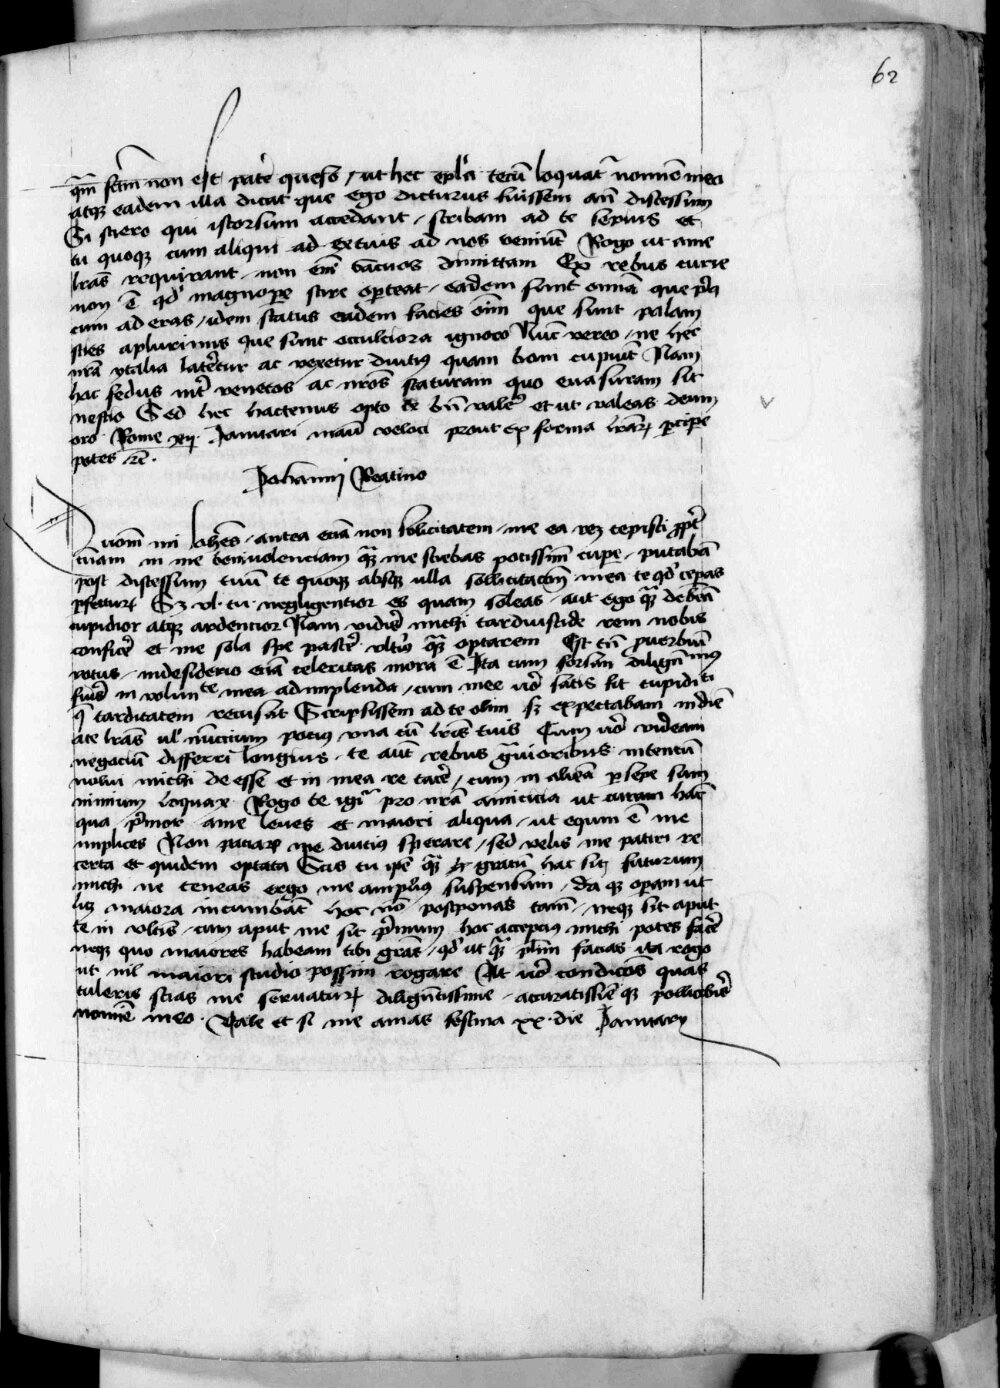 62
qm̄ factū non est patere queso / ut hec epl'a tecū loquatr nomīe meo
atqz eadem illa dicat que ego dicturus fuissem an̄ discessum
Si sciero qui istorsum accedant / scribam ad te sepius et
tu quoqz cum aliqui ad ex tuis ad nos veniūt Rogo ut a me
lrās requirant / non eni vacuos dimittam Ex rebus curie
non ē qd' magnope scire oporteat / eadem sunt omīa que prius
cum ad eras / idem status eadem facies oīm que sunt palam
scies a plurimis que sunt occultiora ignoro Nūc vereo / ne hec
nrā ytalia lateretur ac vexetur diutius quam boni cupiūt Nam
hoc fedus int' venetos ac nros staturam quo euasuram sit
nescio Sed hec hactenus opto te bn̄ valer' et ut valeas deum
oro Rome xij Januari manū veloci prout ex forma lrar' pcipe
potes rē.
Johanni Reatino
Quom mi Johēs antea eciā non sollicitatem me ea rem cepisti pp̄t'
tuam in me benivolenciam qz me sciebas potissim̄ cupe / putabā
post discessum tuū te quoqz absqz ulla sollicitacōn mea te qd' cepas
pfectur' Sz vl' tu negligentior es quam soleas aut ego qz debeā
cupidior atqz ardentior Nam videris michi tardiuscide rem nobis
conficer' et me sola spe pascer' ult'ius qz optarem Est tn̄ puerbiū
vetus / in desiderio eciā celeritas mora ē Ita cum forsan dilign̄tissimus
fueris in volūte mea adimplenda / cum mee vero satis sit cupiditi
q̄ tarditatem recusat Scripsissem ad te olim sz expectabam in diē
a te lrās vl' nūccium potius una cū lris tuis Cum vero videam
negociū differri longius te aut rebus grauioribus intentū
nolui michi de esse et in mea re tacer' / cum in aliena psepe sum
nimium loquax Rogo te igit' pro nrā amicitia ut curam hāc
qua premor a me leues et maiori aliqua / ut equum ē me
implices Non patiare me diutius sperare / sed velis me patiri re
certa et quidem optata Scis tu ipe qz gratū hoc sit futurum
michi ne teneas ergo me amplius suspensum / da qz opam ut
licz maiora incumbāt hoc nō postponas tam̄ / neqz sit aput
te in ultīs / cum aput me sit primum hoc accepcius michi potes facer'
neqz quo maiores habeam tibi gras / qd' ut qz primū facias ita rogo
ut nil maiori studio possim rogare At vero condicōes quas
tuleris scias me seruatur' diligntissime accuratissieqz polliceberis
nomīe meo Vale et si me amas festina xx die January